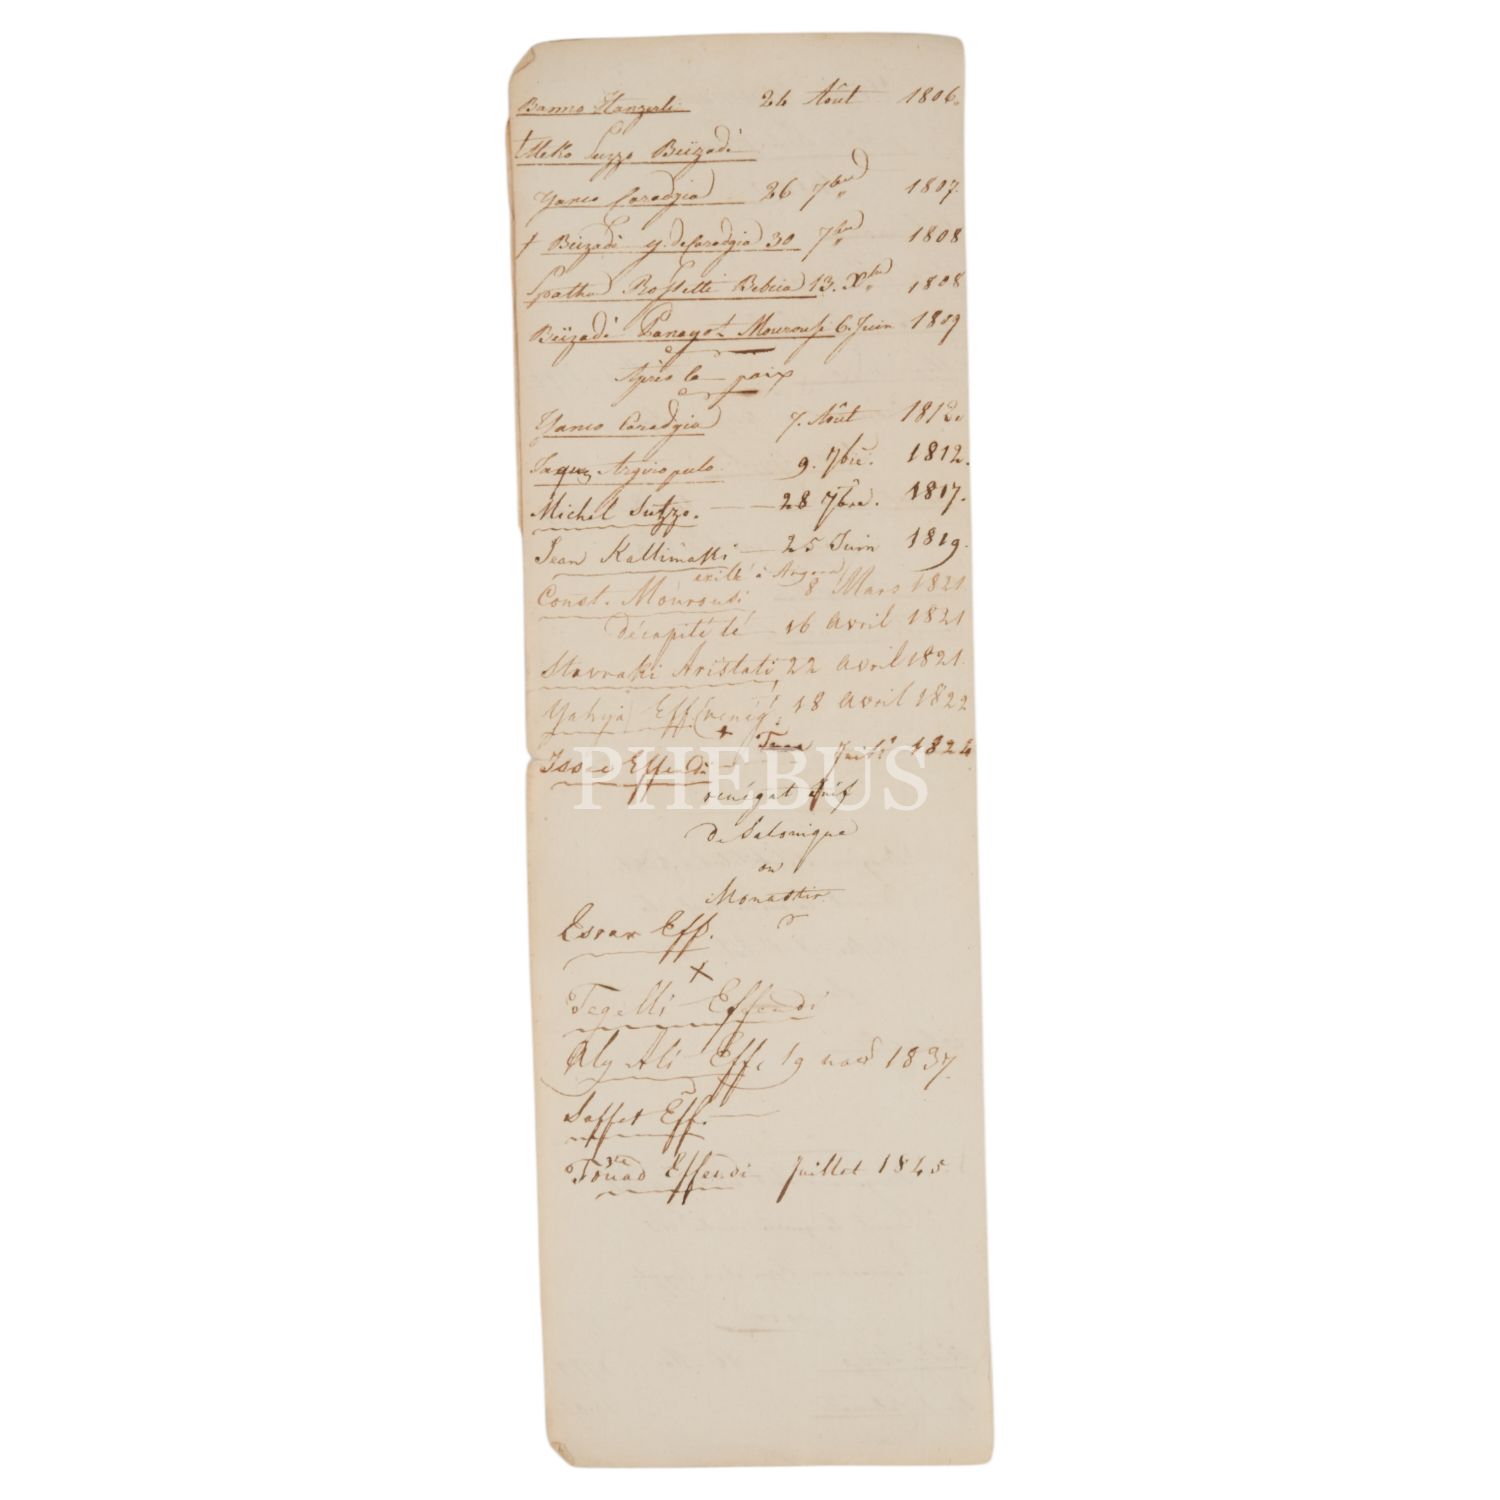 Banno Hanzerli 24 Août 1806.
† Aleko Suzzo Beïzadé
Yanco Caradgia 26 7bre 1807.
† Beïzadé y. de Caradgia 30 7bre 1808
Spatha Rossetti Bebeia 13. Xbre 1808
Beïzadé Panayot. Mourousi 6. Juin 1809
Après la paix
Yanco Caradgia 7. Août 1812.
Jaques Argiropulo 9. 7bre. 1812.
Michel Sutzzo. 28 7bre. 1817.
Jean Kallimakki 25 Juin 1819.
exilé à Angora
Const. Mourousi 8 Mars 1821.
décapité le 16 avril 1821
Stavraki Aristati 22 avril 1821.
Yahya Eff (renég. 18 avril 1822
+
Isaac Effendi Juill. 1824
renégat Juif
de Salonique
ou
Monastir
Esrar Eff.
X
Tegelli Effendi
Aly Ali Eff. 19 1837.
Saffet Eff.
Foüad Effendi Juillet 1845
PHEBUS